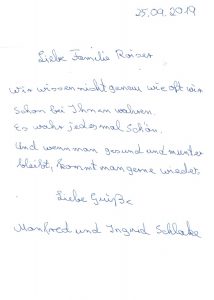 25.09.2019
Liebe Familie Roiser
wir wissen nicht genau wie oft wir
schon bei Ihnen wahren.
Es wahr jedesmal schön.
Und wenn man gesund und munter
bleibt, kommt man gerne wieder.
Liebe Grüße
Manfred und Ingrid Schlake